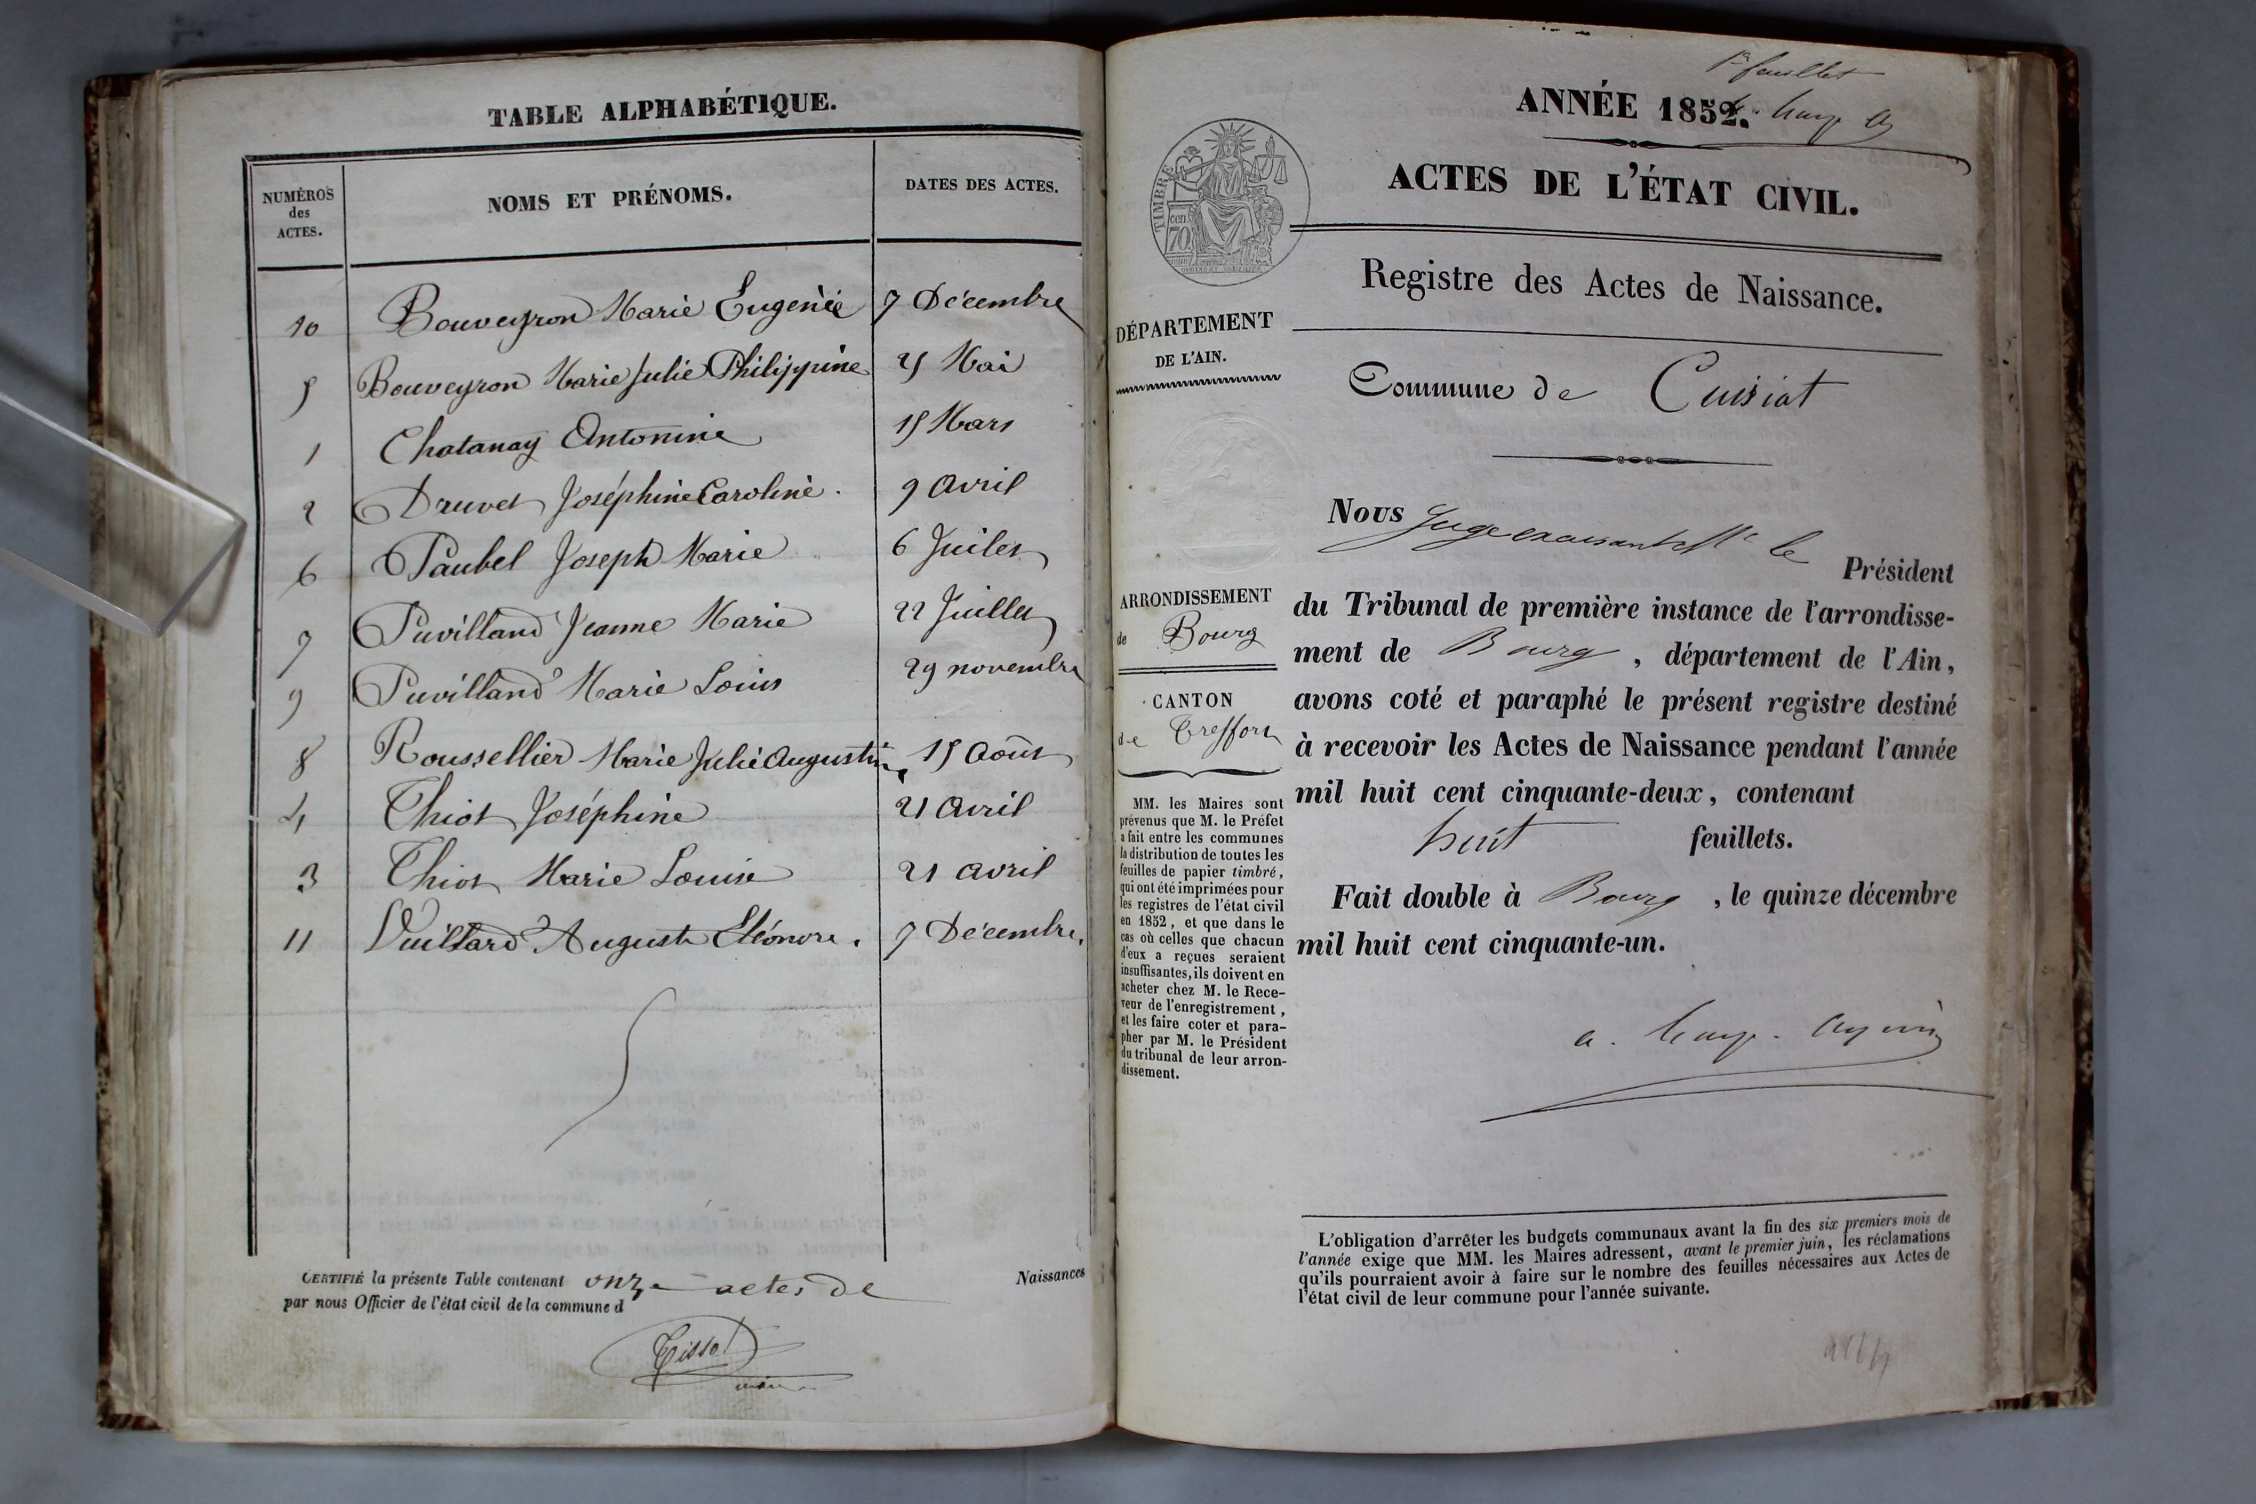 TABLE ALPHABÉTIQUE.
NUMÉROS des ACTES. NOMS ET PRÉNOMS. DATES DES ACTES.
10 Bouveyron Marie Eugenie 7 Décembre
5 Bouveyron Marie Julie Philippine 25 Mai
1 Chatanay Antonine 15 Mars
2 Druvet Joséphine Caroline. 9 avril
6 Paubel Joseph Marie 6 Juilet
7 Puvilland Jeanne Marie 22 Juillet
9 Puvilland Marie Louis 29 novembre
8 Roussellier Marie Julie Augustine 15 Août
4 Thiot Joséphine 21 avril
3 Thiot Marie Louise 21 avril
11 Vuillard Auguste Eléonore. 7 Décembre.
CERTIFIÉ la présente Table contenant onze actes de Naissances
par nous Officier de l'état civil de la commune d
Tissot
maire
1er feuillet
ANNÉE 1852.
ACTES DE L'ÉTAT CIVIL.
TIMBRE
70 cen.
Registre des Actes de Naissance.
DÉPARTEMENT
DE L'AIN.
Commune de Cuisiat
ARRONDISSEMENT
de Bourg
CANTON
de Treffort
MM. les Maires sont
prévenus que M. le Préfet
a fait entre les communes
la distribution de toutes les
feuilles de papier timbré,
qui ont été imprimées pour
les registres de l'état civil
en 1852, et que dans le
cas où celles que chacun
d'eux a reçues seraient
insuffisantes, ils doivent en
acheter chez M. le Rece-
veur de l'enregistrement,
et les faire coter et para-
pher par M. le Président
du tribunal de leur arron-
dissement.
Nous Juge le Président
du Tribunal de première instance de l'arrondisse-
ment de Bourg, département de l'Ain,
avons coté et paraphé le présent registre destiné
à recevoir les Actes de Naissance pendant l'année
mil huit cent cinquante-deux, contenant
huit feuillets.
Fait double à Bourg, le quinze décembre
mil huit cent cinquante-un.
L'obligation d'arrêter les budgets communaux avant la fin des six premiers mois de
l'année exige que MM. les Maires adressent, avant le premier juin, les réclamations
qu'ils pourraient avoir à faire sur le nombre des feuilles nécessaires aux Actes de
l'état civil de leur commune pour l'année suivante.